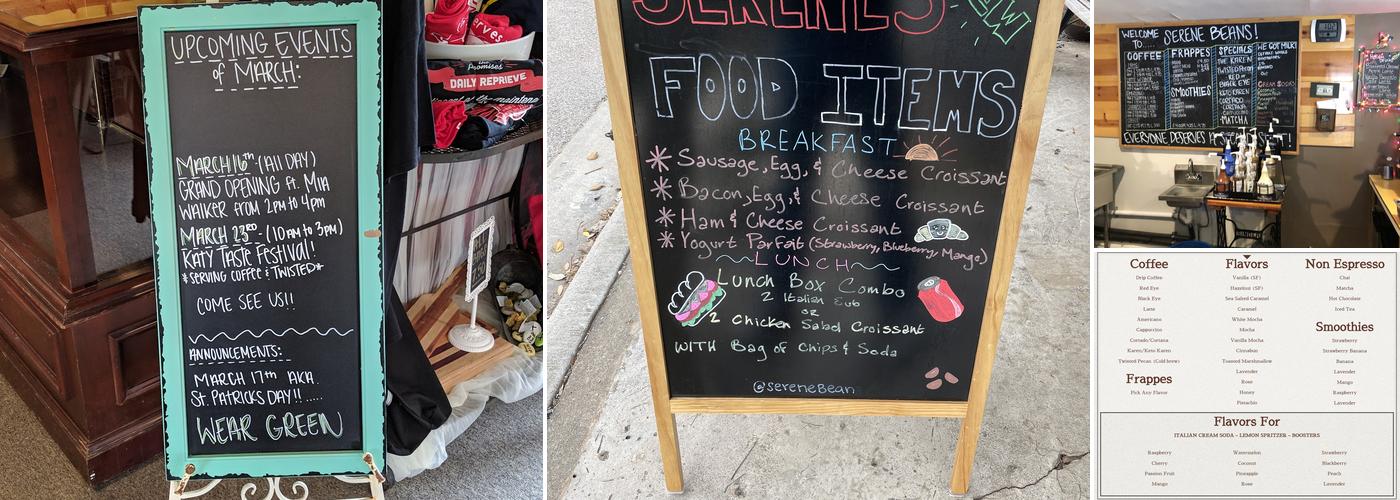 UPCOMING EVENTS
of MARCH:
MARCH 16th - (All DAY)
GRAND OPENING ft. MIA
WALKER from 2pm to 4pm
MARCH 23RD - (10AM to 3PM)
KATY TASTE FESTIVAL!
*SERVING COFFEE & TWISTED*
COME SEE US!!
ANNOUNCEMENTS:
MARCH 17th AKA.
ST. PATRICKS DAY!! .....
WEAR GREEN
Promises
DAILY REPRIEVE
SERENE'S
FOOD ITEMS
BREAKFAST
* Sausage, Egg, & Cheese Croissant
* Bacon, Egg, & Cheese Croissant
* Ham & Cheese Croissant
* Yogurt Parfait (Strawberry, Blueberry, Mango)
LUNCH
Lunch Box Combo
2 Italian Sub
or
2 Chicken Salad Croissant
WITH Bag of Chips & Soda
@sereneBean
WELCOME TO.... SERENE BEANS!
COFFEE
FRAPPES
SMOOTHIES
SPECIALS
THE KAREN
TWISTED PECAN
RED or
BLACK EYE
KETO KAREN
CORTADO
CORTANA
MATCHA
WE GOT MILK!
CREAM SODAS
EVERYONE DESERVES
Coffee
Drip Coffee
Red Eye
Black Eye
Latte
Americano
Cappuccino
Cortado/Cortana
Karen/Keto Karen
Twisted Pecan (Cold brew)
Frappes
Pick Any Flavor
Flavors
Vanilla (SF)
Hazelnut (SF)
Sea Salted Caramel
Caramel
White Mocha
Mocha
Vanilla Mocha
Cinnabun
Toasted Marshmallow
Lavender
Rose
Honey
Pistachio
Non Espresso
Chai
Matcha
Hot Chocolate
Iced Tea
Smoothies
Strawberry
Strawberry Banana
Banana
Lavender
Mango
Raspberry
Lavender
Flavors For
ITALIAN CREAM SODA - LEMON SPRITZER - BOOSTERS
Raspberry
Cherry
Passion Fruit
Mango
Watermelon
Coconut
Pineapple
Rose
Strawberry
Blackberry
Peach
Lavender